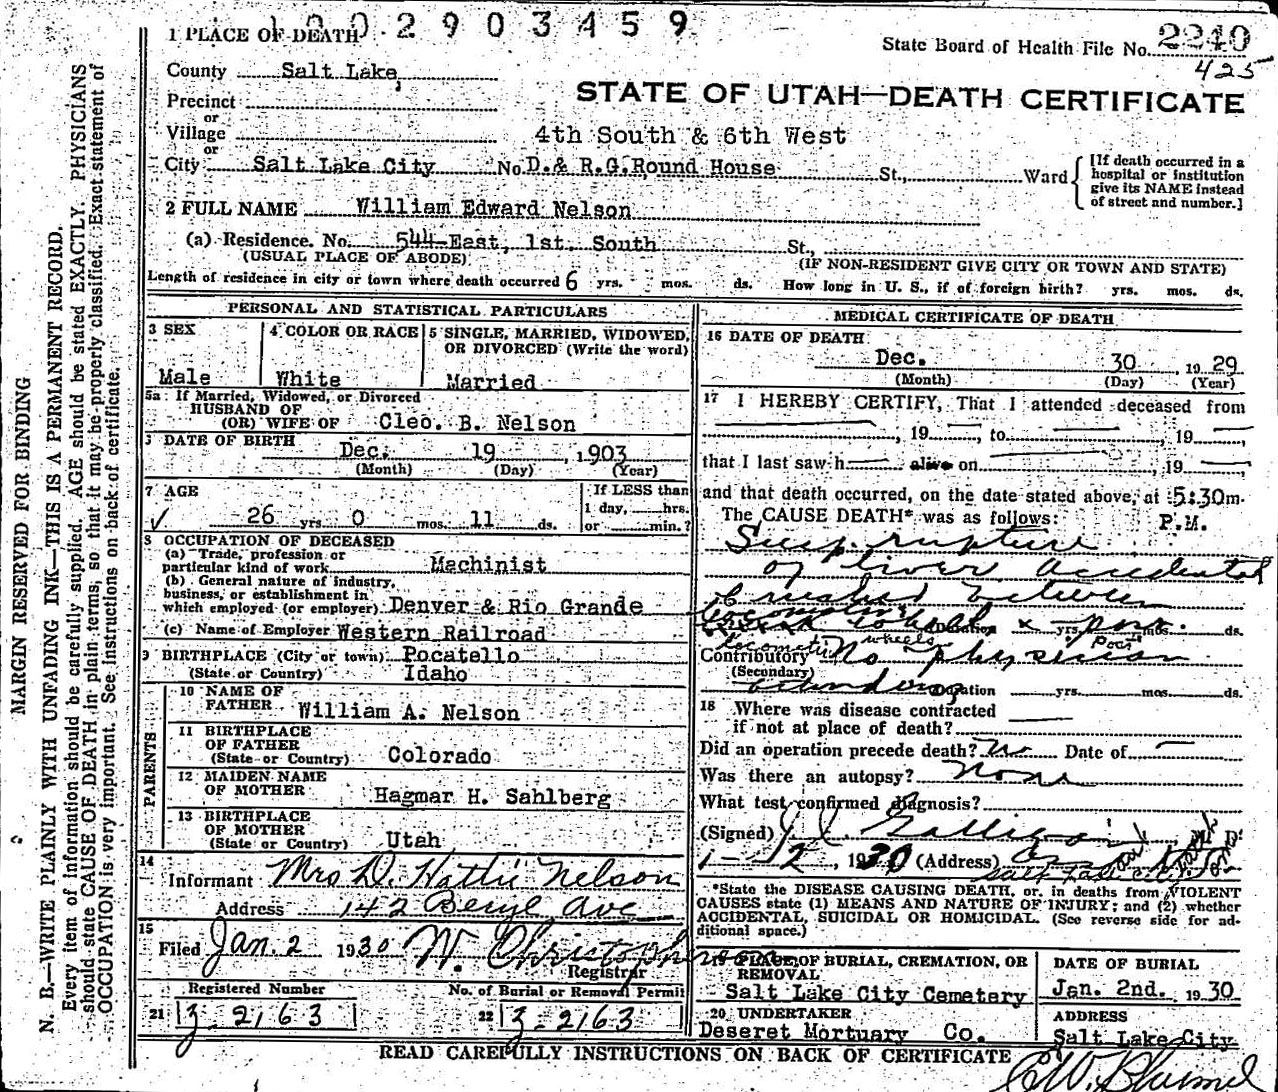 1002903459
1 PLACE OF DEATH
State Board of Health File No. 2240
425
County Salt Lake,
STATE OF UTAH—DEATH CERTIFICATE
Precinct
or
Village
4th South & 6th West
or
City Salt Lake City No. D. & R.G. Round House St., Ward
[If death occurred in a hospital or institution give its NAME instead of street and number.]
2 FULL NAME William Edward Nelson
(a) Residence. No. 544 East, 1st. South St.,
(USUAL PLACE OF ABODE) (IF NON-RESIDENT GIVE CITY OR TOWN AND STATE)
Length of residence in city or town where death occurred 6 yrs. mos. ds. How long in U. S., if of foreign birth? yrs. mos. ds.
PERSONAL AND STATISTICAL PARTICULARS
3 SEX
Male
4 COLOR OR RACE
White
5 SINGLE, MARRIED, WIDOWED,
OR DIVORCED (Write the word)
Married
5a If Married, Widowed, or Divorced
HUSBAND OF
(OR) WIFE OF Cleo. B. Nelson
DATE OF BIRTH
Dec. 19 1903
(Month) (Day) (Year)
7 AGE
26 yrs. 0 mos. 11 ds.
If LESS than
1 day, hrs.
or min.?
8 OCCUPATION OF DECEASED
(a) Trade, profession or
particular kind of work Machinist
(b) General nature of industry,
business, or establishment in
which employed (or employer) Denver & Rio Grande
(c) Name of Employer Western Railroad
9 BIRTHPLACE (City or town) Pocatello
(State or Country) Idaho
PARENTS
10 NAME OF
FATHER William A. Nelson
11 BIRTHPLACE
OF FATHER
(State or Country) Colorado
12 MAIDEN NAME
OF MOTHER Hagmar H. Sahlberg
13 BIRTHPLACE
OF MOTHER
(State or Country) Utah
14
Informant Mrs D. Hattie Nelson
Address 142 Beryl Ave
15
Filed Jan. 2 1930 W. Christopherson
Registrar
Registered Number No. of Burial or Removal Permit
21 3-2163 22 3-2163
MEDICAL CERTIFICATE OF DEATH
16 DATE OF DEATH
Dec. 30, 1929
(Month) (Day) (Year)
17 I HEREBY CERTIFY, That I attended deceased from
, 19 , to , 19 ,
that I last saw h alive on , 19
and that death occurred, on the date stated above, at 5:30m.
The CAUSE DEATH* was as follows: P.M.
rupture
of liver accidental
crushed between
locomotive
Duration yrs. mos. ds.
wheels
Contributory No physician
(Secondary)
attending Duration yrs. mos. ds.
18 Where was disease contracted
if not at place of death?
Did an operation precede death? No Date of
Was there an autopsy? None
What test confirmed diagnosis?
(Signed) M. D.
1-2, 1930 (Address) Salt Lake
*State the DISEASE CAUSING DEATH, or, in deaths from VIOLENT
CAUSES state (1) MEANS AND NATURE OF INJURY; and (2) whether
ACCIDENTAL, SUICIDAL OR HOMICIDAL. (See reverse side for ad-
ditional space.)
19 PLACE OF BURIAL, CREMATION, OR
REMOVAL
Salt Lake City Cemetery
DATE OF BURIAL
Jan. 2nd. 1930
20 UNDERTAKER
Deseret Mortuary Co.
ADDRESS
Salt Lake City
READ CAREFULLY INSTRUCTIONS ON BACK OF CERTIFICATE
MARGIN RESERVED FOR BINDING
N. B.—WRITE PLAINLY WITH UNFADING INK—THIS IS A PERMANENT RECORD.
Every item of information should be carefully supplied. AGE should be stated EXACTLY. PHYSICIANS
should state CAUSE OF DEATH in plain terms, so that it may be properly classified. Exact statement of
OCCUPATION is very important. See instructions on back of certificate.